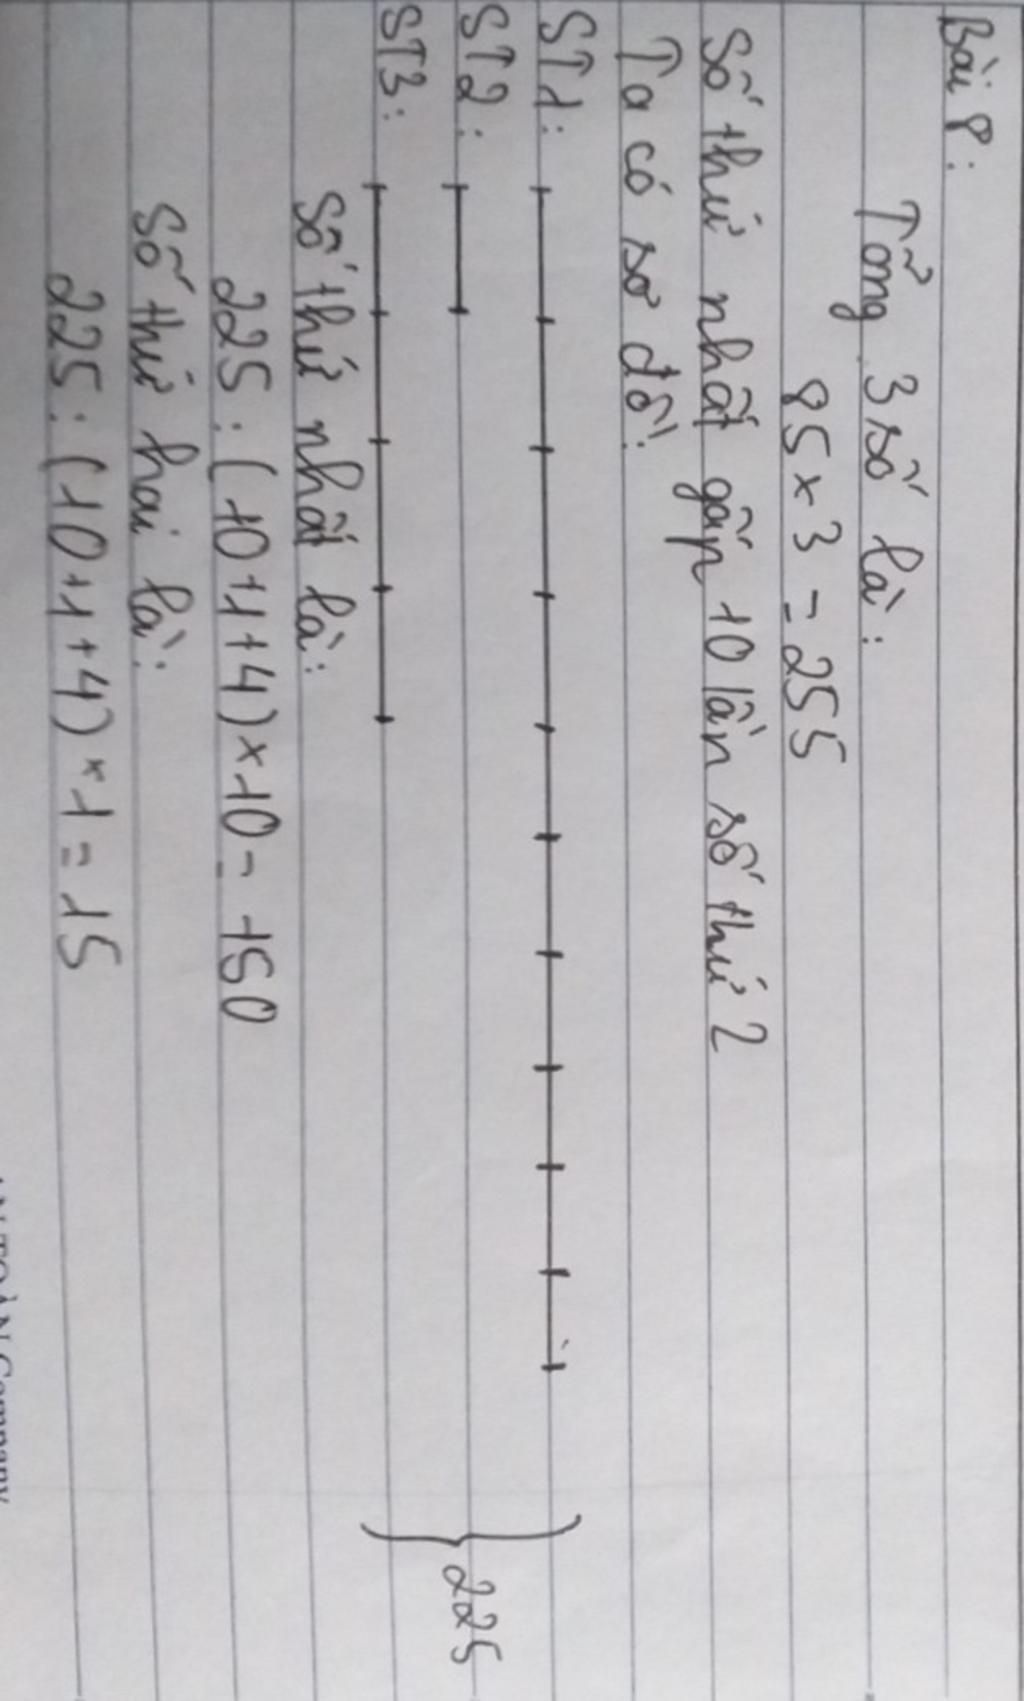 Bài 8:
Tổng 3 số là:
85 x 3 = 255
Số thứ nhất gấp 10 lần số thứ 2
Ta có sơ đồ:
ST1:
ST2:
225
ST3:
Số thứ nhất là:
225 : (10+1+4) x 10 = 150
Số thứ hai là:
225 : (10+1+4) x 1 = 15
ANTOÀN Company